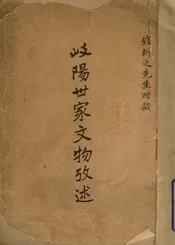 錢新之先生贈藏
岐陽世家文物攷述